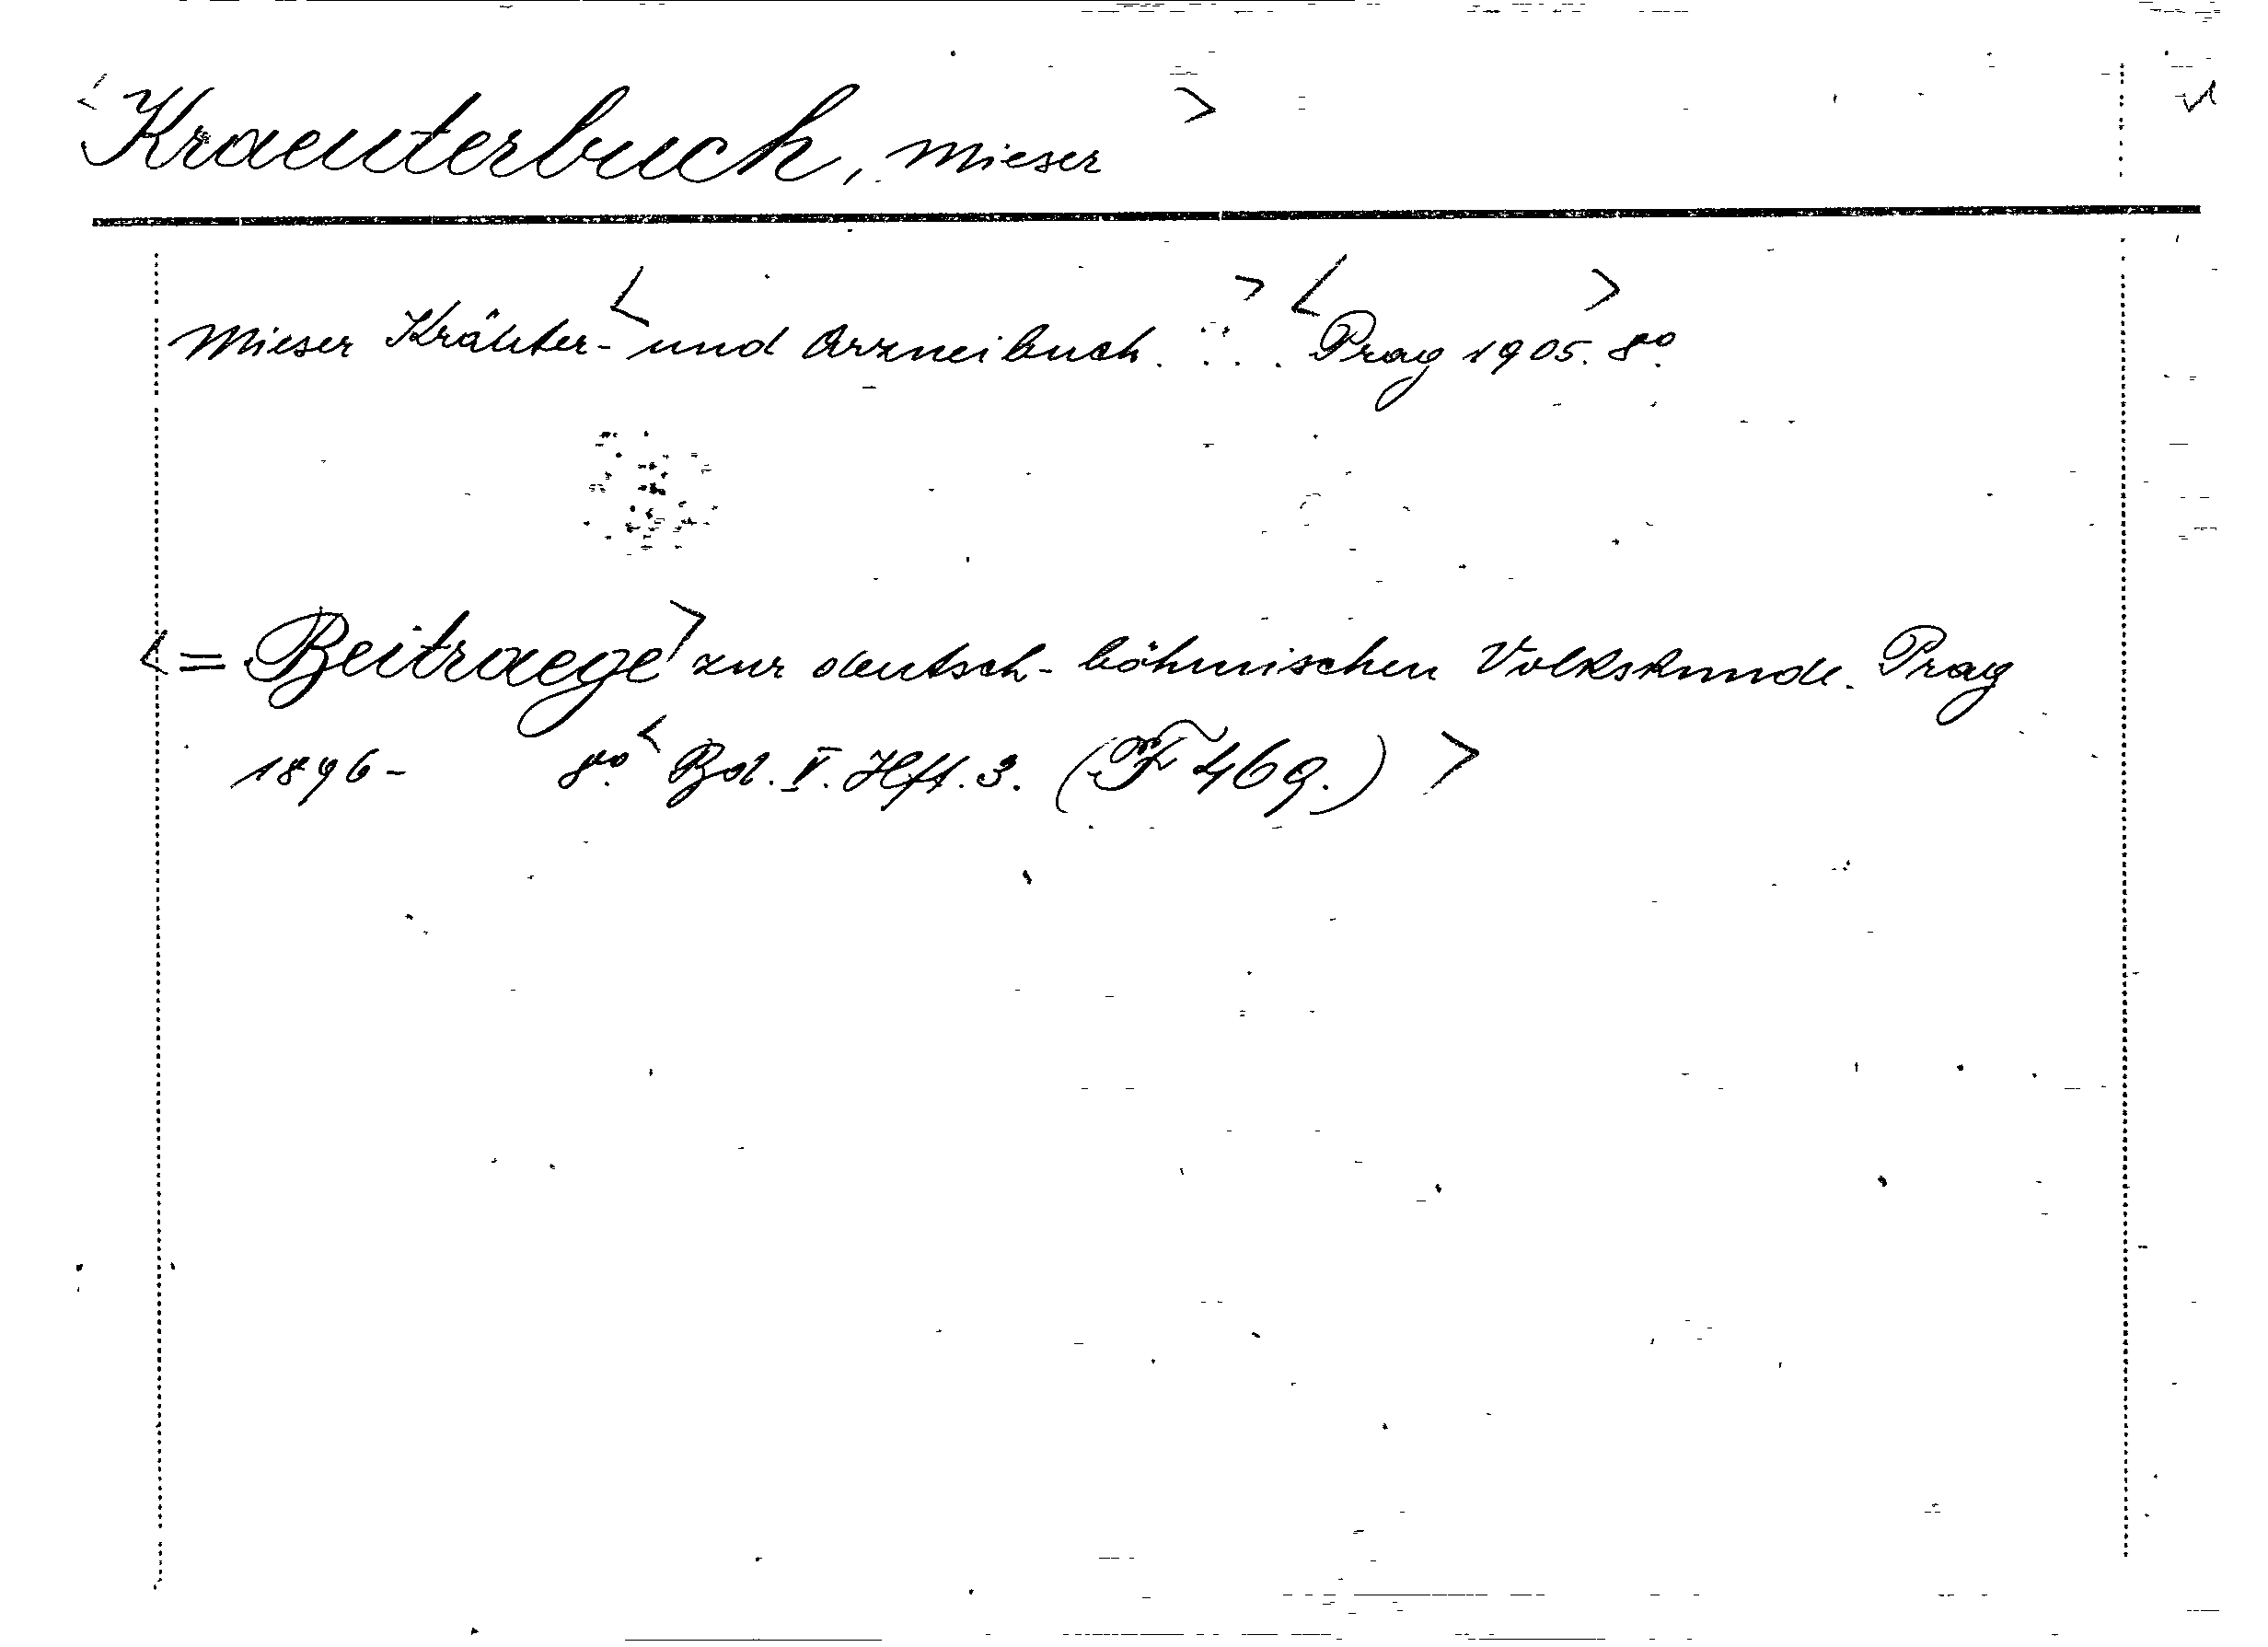 <Kraeuterbuch, Mieser>
Mieser Kräuter-<und Arzneibuch. . . .> <Prag 1905.> 8º.
<= Beitraege> zur deutsch-böhmischen Volkskunde. Prag
1896- 8º. <Bd. V. Hft. 3. (F 469.)>